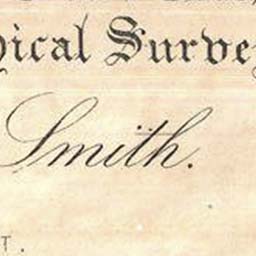 ical Survey
Smith.
T.